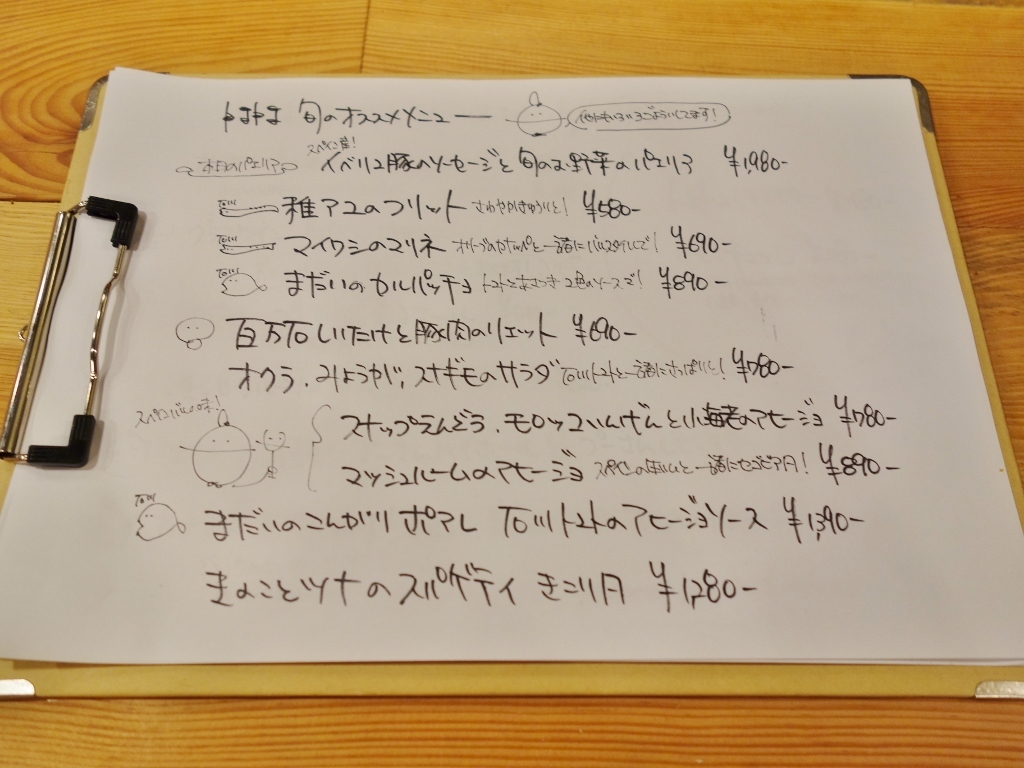 やまやま 旬のオススメメニュー
他にもいろいろごよういしてます!
スペイン産!
本日のパエリア イベリコ豚のソーセージと旬のお野菜のパエリア ¥1,980-
稚アユのフリット さわやかきゅうりと! ¥580-
石川 マイワシのマリネ オリーブやケッパーと一緒にバルスタイルで! ¥690-
石川 まだいのカルパッチョ トマトとあさつき 2色のソースで! ¥890-
百万石しいたけと豚肉のリエット ¥690-
オクラ、みょうが、スナギモのサラダ 石川トマトと一緒にさっぱりと! ¥780-
スペインバルの味!
スナップえんどう、モロッコいんげんと小海老のアヒージョ ¥780-
マッシュルームのアヒージョ スペインの 一緒にセゴビア風! ¥890-
石川 まだいのこんがりポアレ 石川トマトのアヒージョソース ¥1,390-
きのことツナのスパゲティ きこり風 ¥1,280-